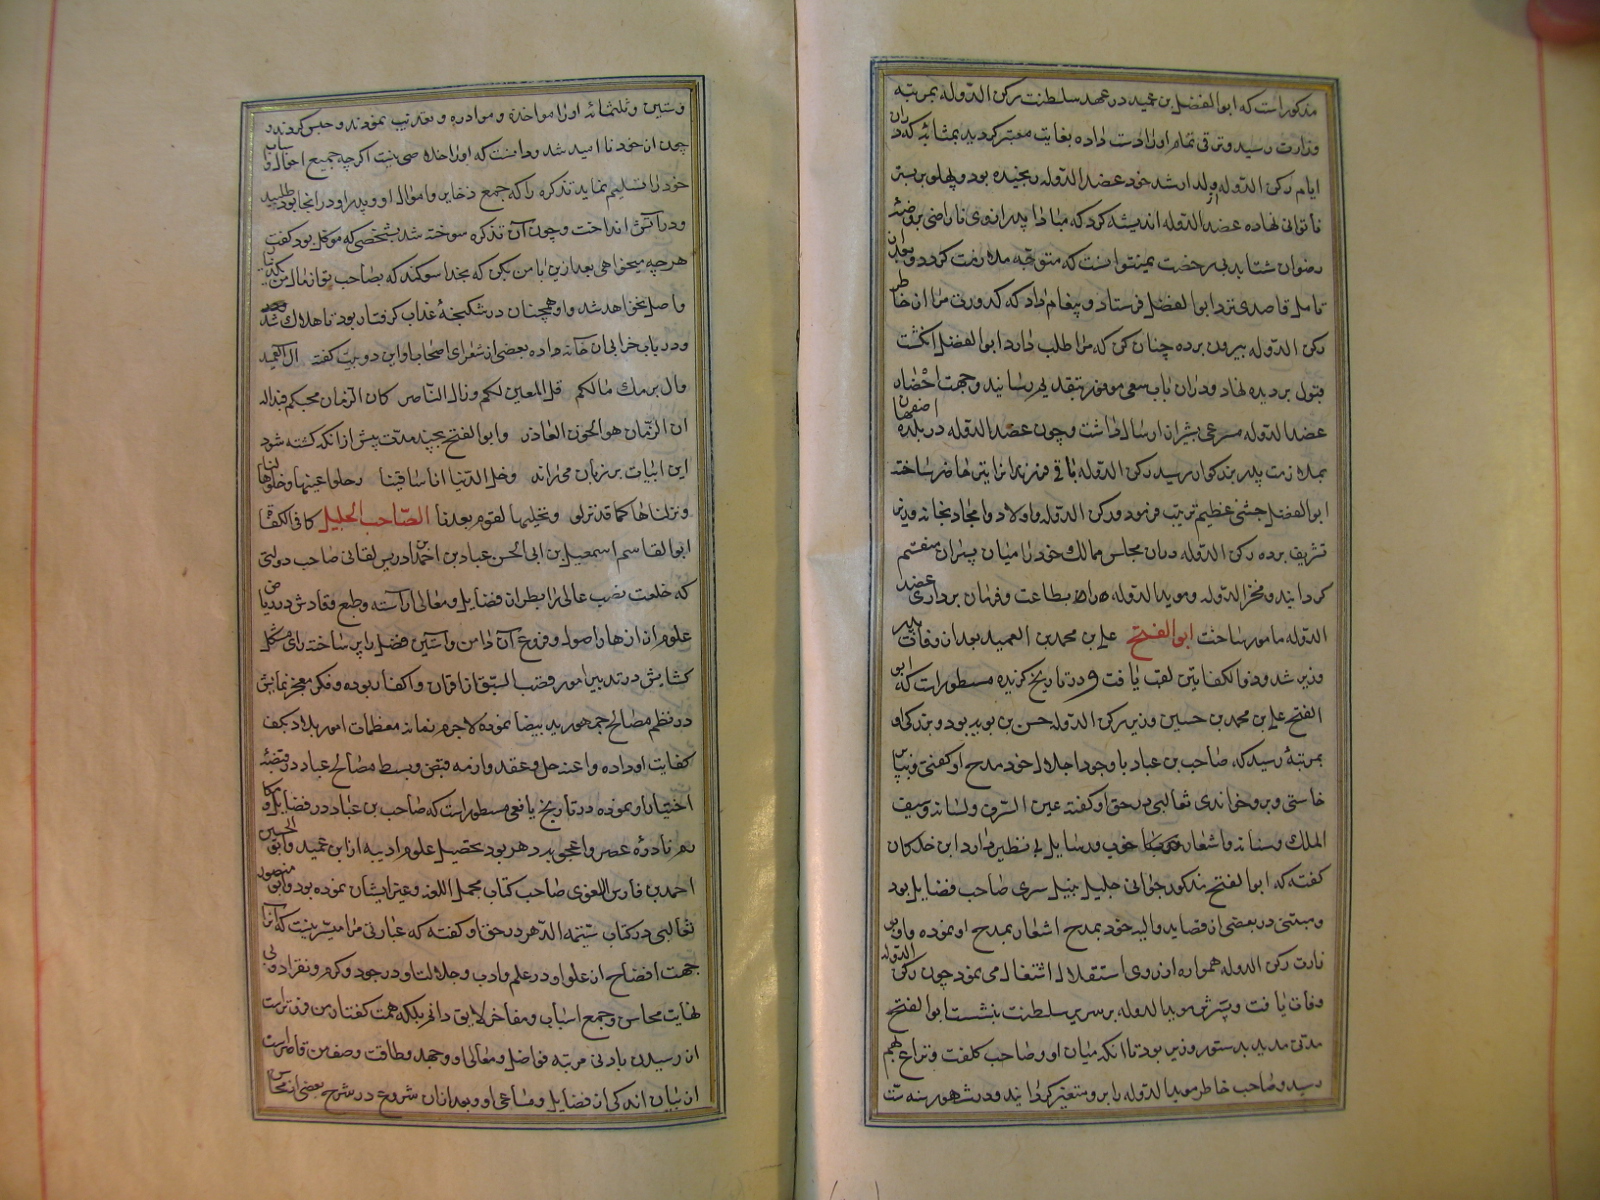 مذكور است كه ابو الفضل بن عميد در عهد سلطنت ركن الدوله بمرتبه
وزارت رسيد و ترقى تمام او را دست داده بغايت معتبر گرديد بمثابهٔ كه در ان
ايام ركن الدوله از ولد ارشد خود عضد الدوله رنجيده بود و پهلو بر بستر
ناتوانى نهاده عضد الدوله انديشه كرد كه مبادا پدر از وى ناراضى بروضهٔ
رضوان شتابد بى رخصت نميتوانست كه متوجه ملازمت گردد و بعد از
تامل قاصدى نزد ابو الفضل فرستاد و پيغام داد كه كدورت مرا از خاطر
ركن الدوله بيرون برده چنان كن كه مرا طلب دارد ابو الفضل انگشت
قبول بر ديده نهاد و در ان باب سعى موفور بتقديم رسانيد و جهت احضار
عضد الدوله مسرعى بشيراز ارسال داشت و چون عضد الدوله در بلدهٔ اصفهان
بملازمت پدر بزركوار رسيد ركن الدوله باقى فرزندانرا نيز حاضر ساخته
ابو الفضل جشنى عظيم ترتيب فرمود و ركن الدوله و اولاد و امجاد بخانه وزير
تشريف برده ركن الدوله در ان مجلس ممالك خود را ميان پسران منقسم
گردانيد و فخر الدوله و مويد الدوله را باطاعت و فرمان بردارى عضد
الدوله مامور ساخت ابو الفتح على بن محمد بن العميد بعد از وفات پدر
وزير شد و ذو الكفايتين لقب يافت و در تاريخ گزيده مسطور است كه ابو
الفتح على بن محمد بن حسين وزير ركن الدوله حسن بن بويه بود و بزركى او
بمرتبهٔ رسيد كه صاحب بن عباد با وجود اجلال خود مدح او گفتى و بپا
خاستى و برو خواندى ثعالبى در حق او گفته عين الشرق و لسانه و سيف
الملك و سنانه و اشعار خوب و رسايل بى نظير دارد ابن خلكان
گفته كه ابو الفتح مذكور جوانى جليل نبيل سرى صاحب فضايل بود
و متنبى در بعضى از قصايد و اليه خود بمدح اشعار بمدح او نموده و او بوزارت
ركن الدوله همواره از روى استقلال اشتغال مى نمود چون ركن الدوله
وفات يافت و پسرش مويد الدوله بر سرير سلطنت بنشست ابو الفتح
مدتى مديد بدستور وزير بود تا انكه ميان او و صاحب كلفت و نزاع بهم
رسيد و صاحب خاطر مويد الدوله را برو متغير گردانيد و در شهور سنه ست
و ستين و ثلثمائه او را مواخذه و مصادره و تعذيب نمودند و حبس كردند و
چون از خود نااميد شد و دانست كه او را خلاصى نيست اگرچه جميع احوال و اسباب
خود را تسليم نمايد تذكره را كه جمع ذخاير و اموال او و پدر او در انجا بود طلبيد
و در آتش انداخت و چون آن تذكره سوخته شد بشخصى كه موكل بود گفت
هر چه ميخواهى بعد از ين با من بكن كه بخدا سوگند كه بصاحب تو از مال من يكدينار
واصل نخواهد شد و او همچنان در شكنجهٔ عذاب گرفتار بود تا هلاك شد
و در باب خرابى ان خانه داده بعضى از شعراى اصحاب او اين دو بيت گفته ال العميد
و ال برمك ما لكم قل المعين لكم و ذل الناصر كان الزمان محبكم فبدا له
ان الزمان هو الخون الغادر و ابو الفتح بچند مدت پيش از انكه كشته شود
اين ابيات بر زبان ميرانده و دخل الدنيا اناسا قبلنا رحلوا عنها و خلوها لنا
و نزلناها كما قد نزلوا و نخليها لقوم بعدنا الصاحب الجليل كافى الكفاة
ابو القاسم اسمعيل بن ابى الحسن عباد بن احمد بن ادريس لقانى صاحب دولتى
كه خلعت نصب عالى را بطراز فضايل و معالى آراسته و طبع وقادش در رياض
علوم از ازهار اصول و فروع آن دامن و آستين فضل را پر ساخته راى مشكل
گشايش در تدبير امور قصب السبق از اقران و اكفا ربوده و فكر معجز نمايش
در نظم مصالح جمهور يد بيضا نموده لاجرم زمانه معظمات امور بلاد بكف
كفايت او داده و اعنهٔ حل و عقد و ازمه قبض و بسط مصالح عباد در قبضهٔ
اختيار او نموده در تاريخ يافعى مسطور است كه صاحب بن عباد در فضايل و مكا
رم نادره عصر و اعجوبه دهر بود تحصيل علوم ادبيه از ابن عميد و ابو الحسين
احمد بن فارس اللغوى صاحب كتاب مجمل اللغه و غير ايشان نموده بود و ابو منصور
ثعالبى در كتاب يتيمه الدهر در حق او گفته كه عبارتى مرا ميسر نيست كه آنرا
جهت افصاح از علو او در علم و ادب و جلالت او در جود و كرم و تفرد او بى
نهايت محاسن و جمع اسباب و مفاخر لايق دانم بلكه همت گفتار من فروتر است
از رسيدن بادنى مرتبه فواضل و معالى او و جهد و طاقت وصف من قاصر است
از بيان اندكى از فضايل و مساعى او و بعد از ان شروع در شرح بعضى از محاسن